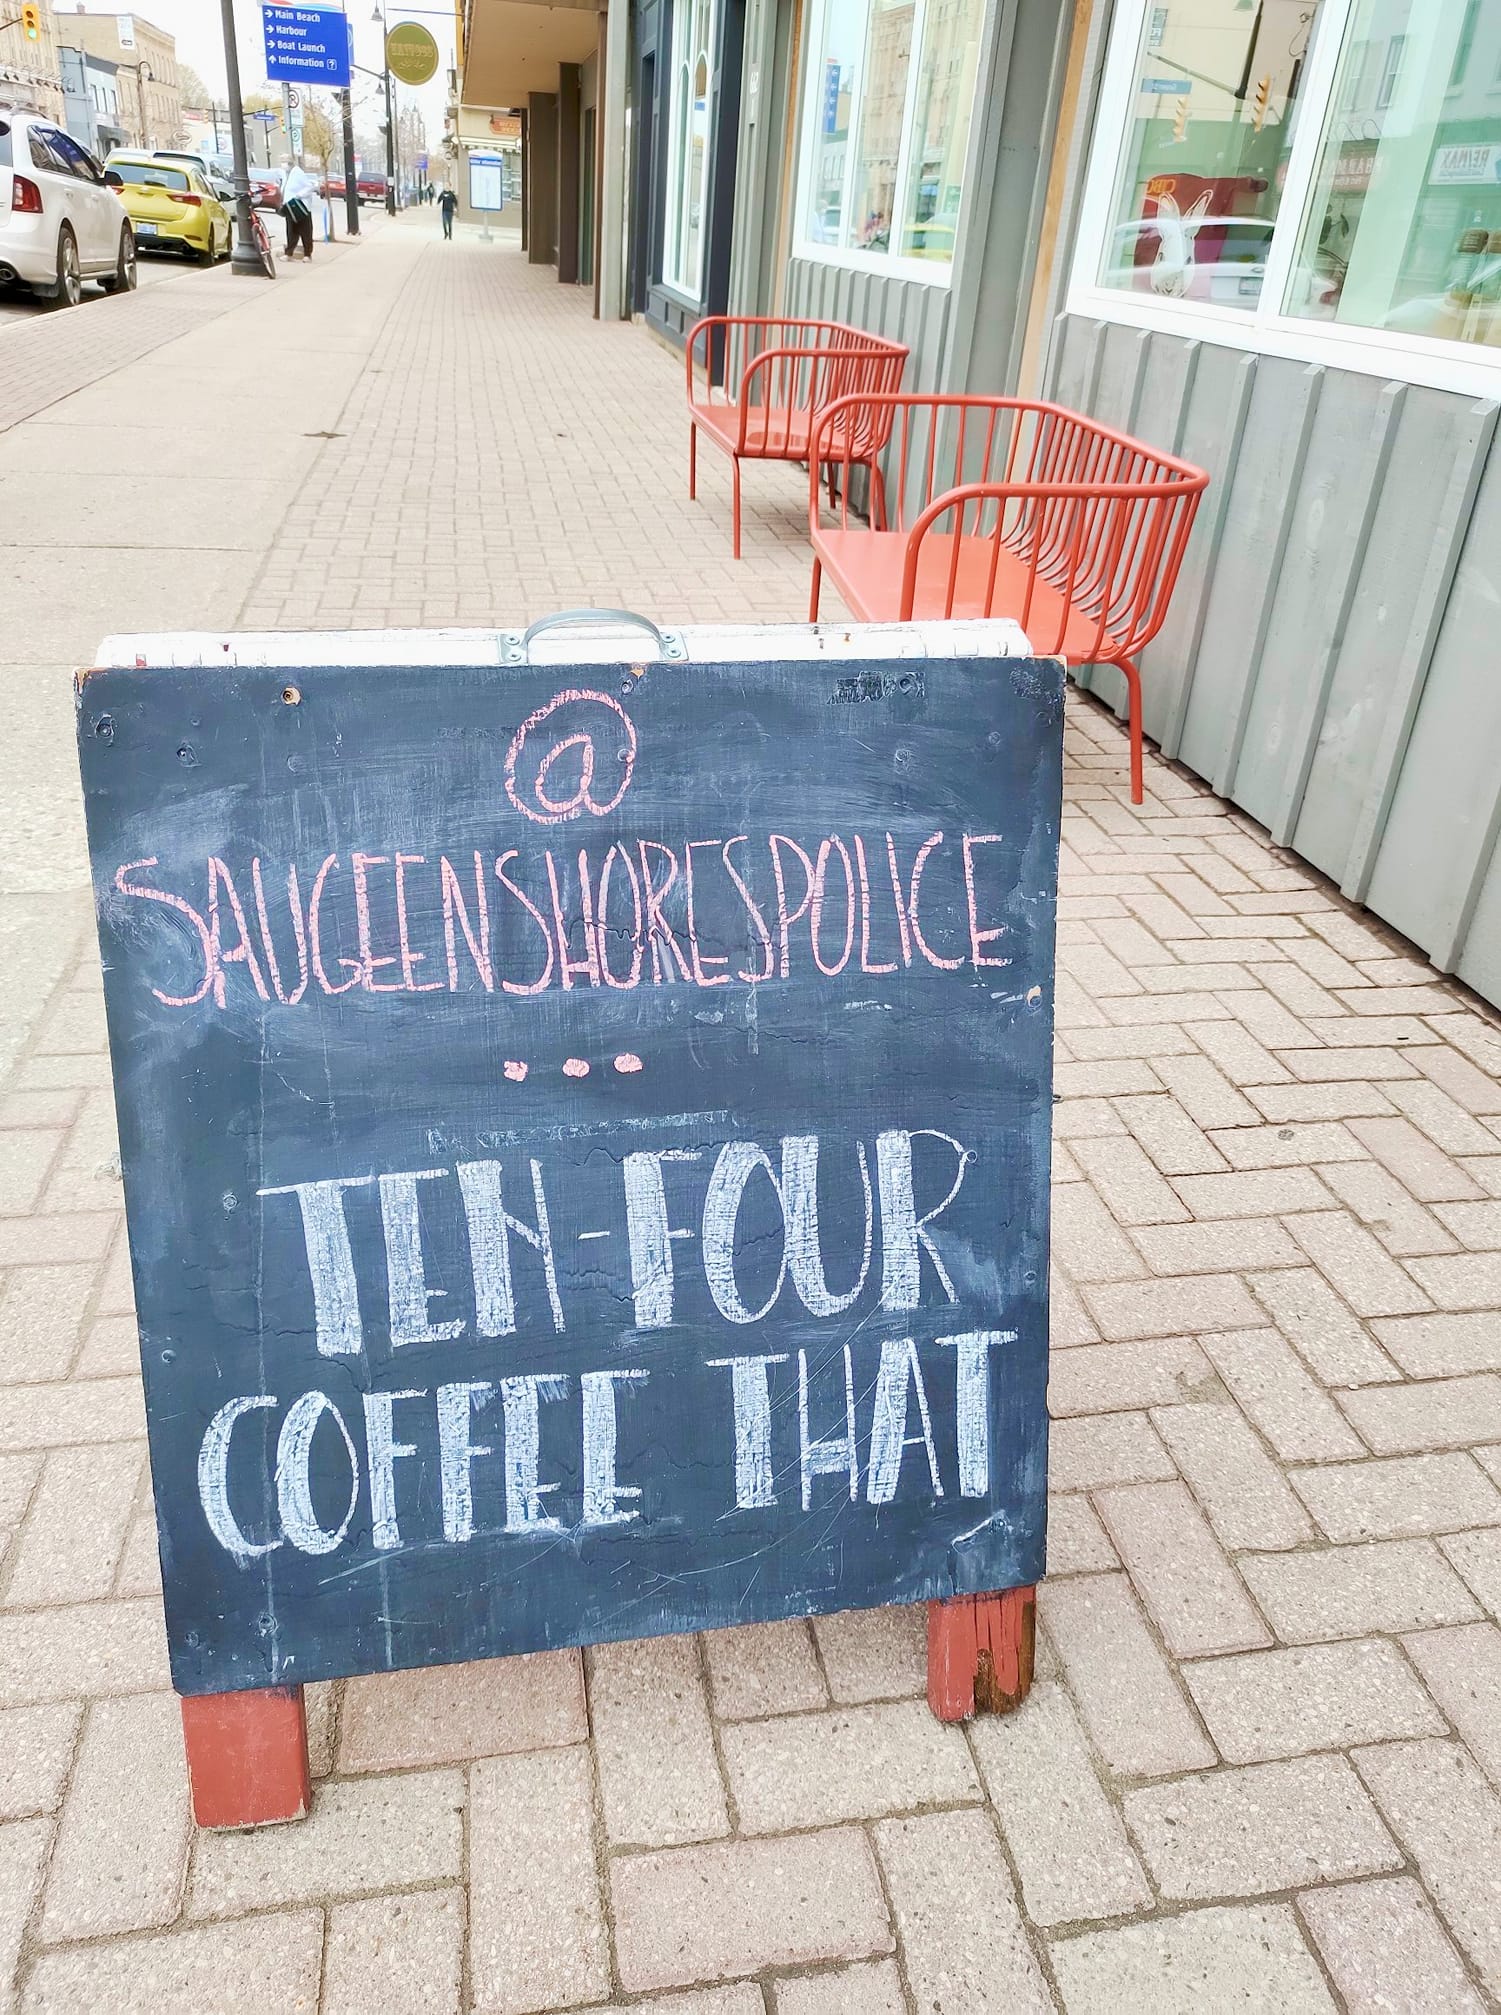 → Main Beach
→ Harbour
→ Boat Launch
↑ Information ?
CIBC
RE/MAX
@
SAUGEENSHORESPOLICE
...
TEN-FOUR
COFFEE THAT